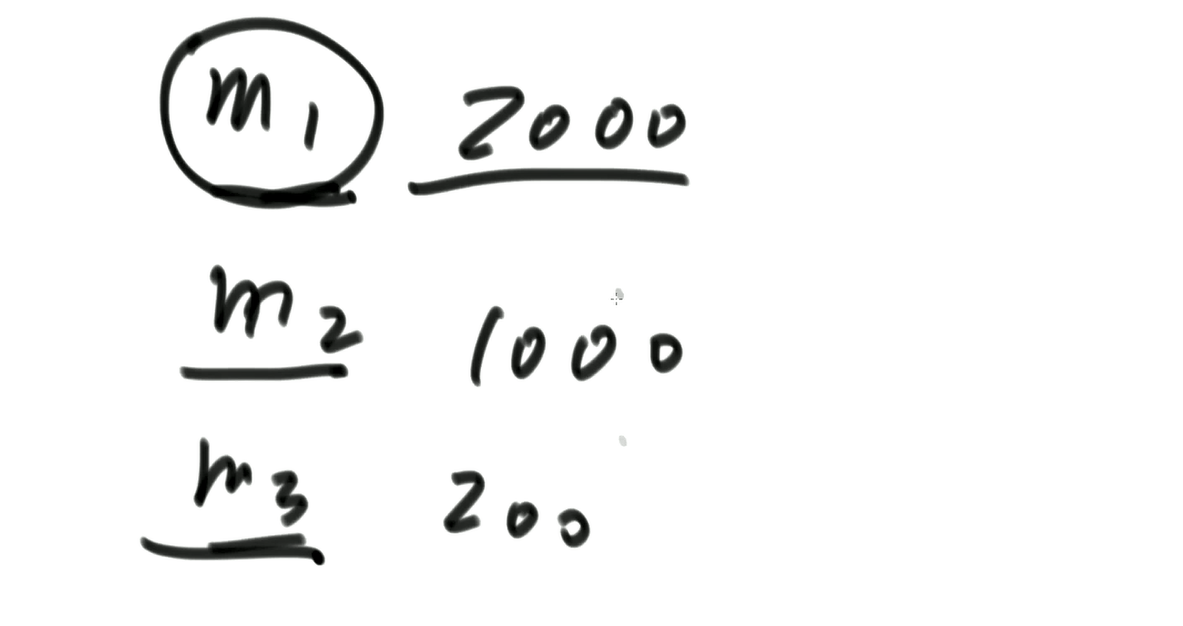 m1 2000
m2 1000
m3 200